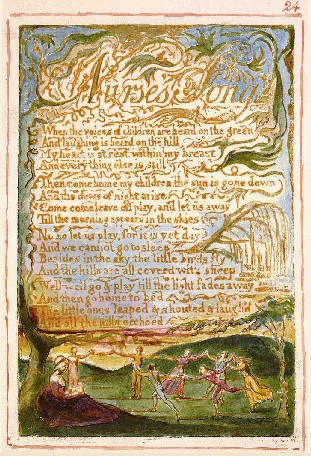 24
Nurse's Song
When the voices of children are heard on the green
And laughing is heard on the hill
My heart is at rest within my breast
And every thing else is still
Then come home my children the sun is gone down
And the dews of night arise
Come come leave off play, and let us away
Till the morning appears in the skies
No no let us play, for it is yet day
And we cannot go to sleep
Besides in the sky, the little birds fly
And the hills are all coverd with sheep
Well well go & play till the light fades away
And then go home to bed
The little ones leaped & shouted & laugh'd
And all the hills ecchoed